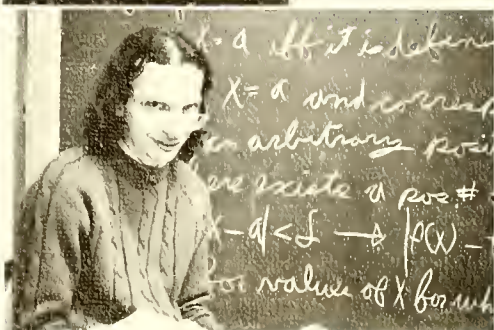 = a iff it is define
X = a and corresp
an arbitrary posi
ere exists a pos. #
X - a| < δ → |f(x) -
for values of X for wh